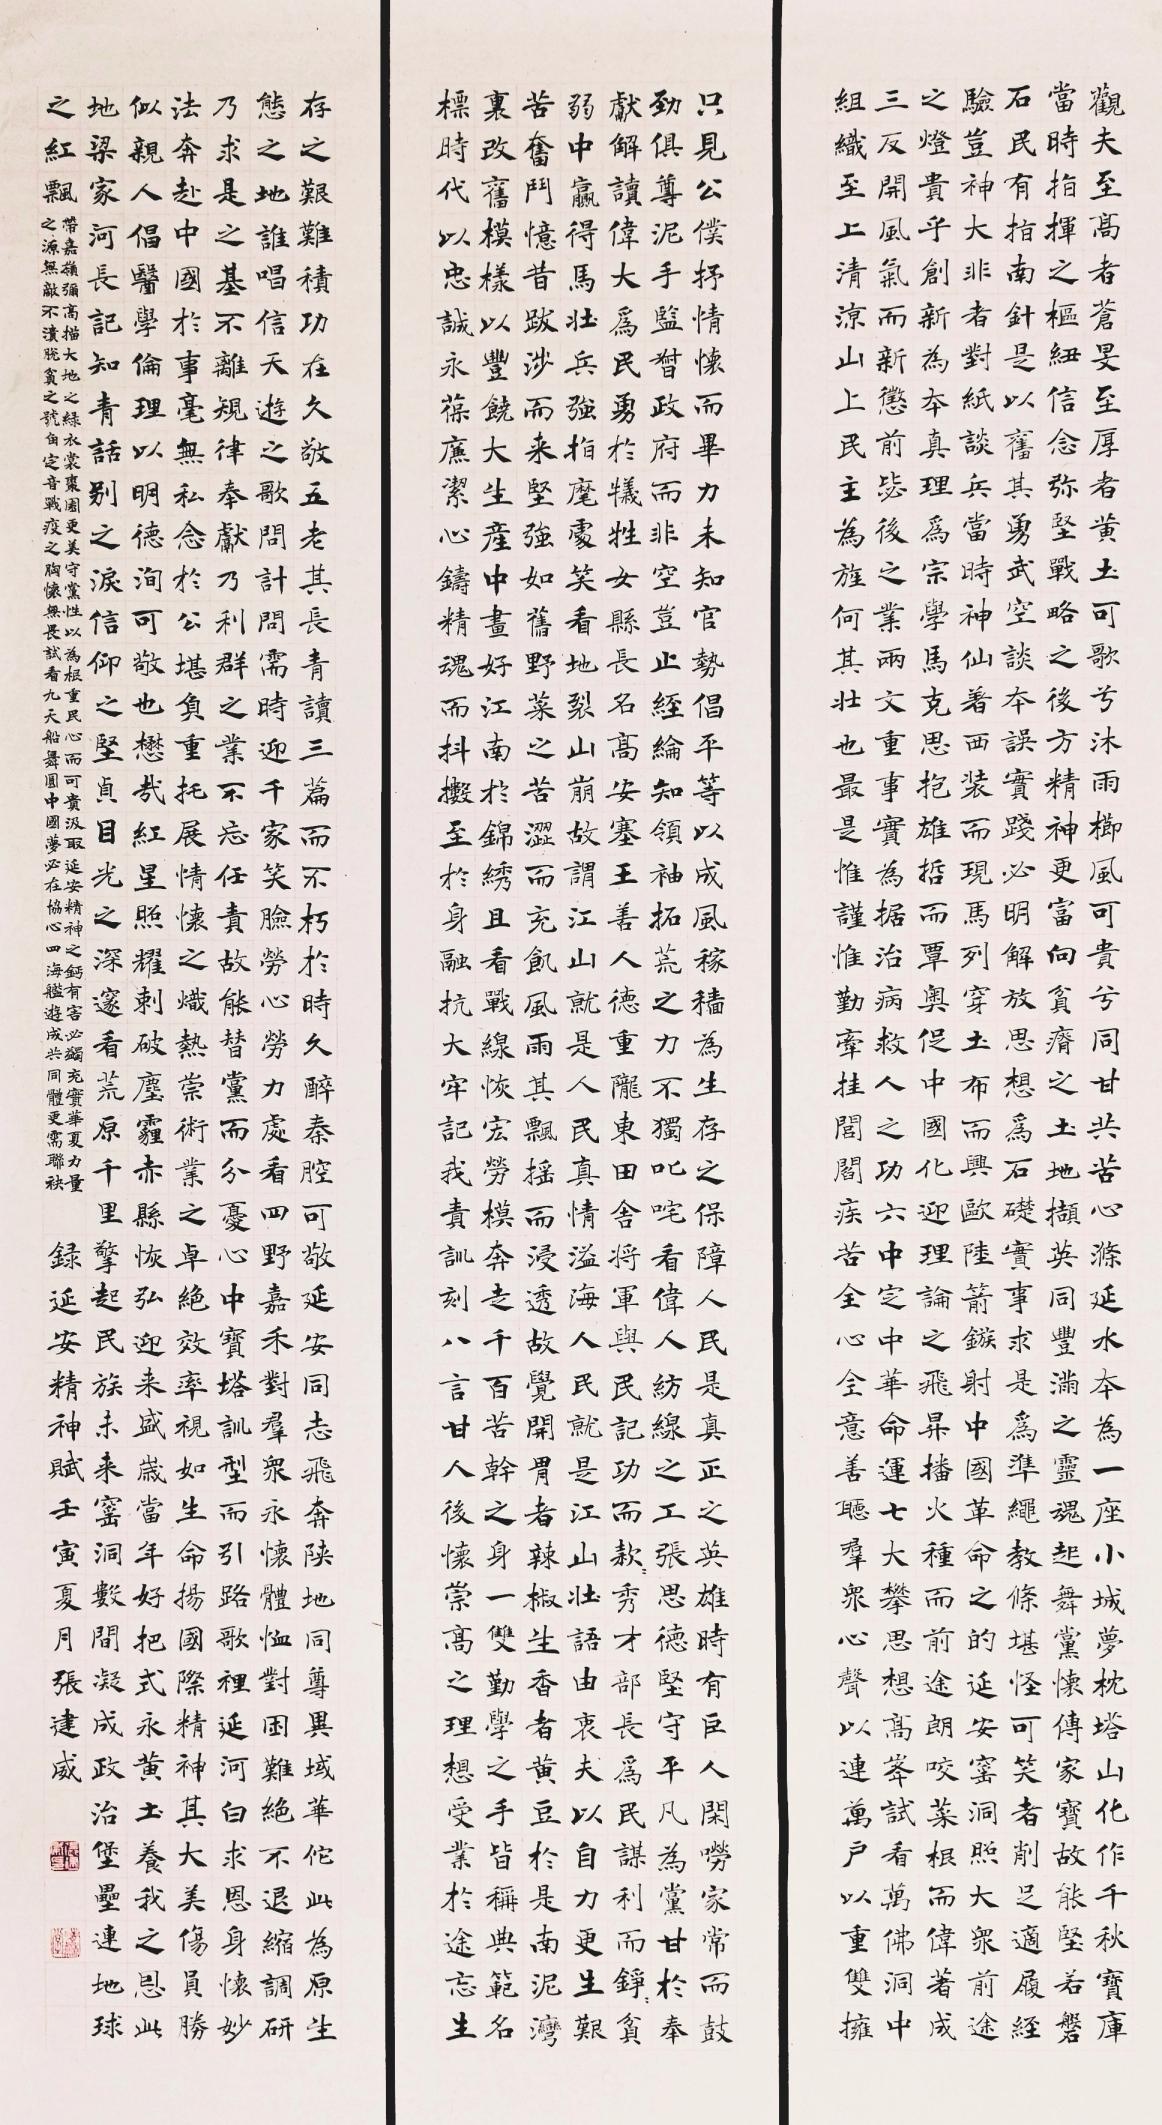 觀夫至高者蒼旻至厚者黃土可歌兮沐雨櫛風可貴兮同甘共苦心滌延水本為一座小城夢枕塔山化作千秋寶庫
當時指揮之樞紐信念弥堅戰略之後方精神更富向貧瘠之土地擷英同豐滿之靈魂起舞黨懷傳家寶故能堅若磐
石民有指南針是以奮其勇武空談本誤實踐必明解放思想爲石礎實事求是爲準繩教條堪怪可笑者削足適履經
驗豈神大非者對紙談兵當時神仙著西裝而現馬列穿土布而興歐陸箭鏃射中國革命之的延安窰洞照大衆前途
之燈貴乎創新為本真理爲宗學馬克思抱雄哲而覃奥促中國化迎理論之飛昇播火種而前途朗咬菜根而偉著成
三反開風氣而新懲前毖後之業兩文重事實為据治病救人之功六中定中華命運七大攀思想高峯試看萬佛洞中
組織至上清涼山上民主為旌何其壯也最是惟謹惟勤牽挂閭閻疾苦全心全意善聽羣衆心聲以連萬户以重雙擁
只見公僕抒情懷而畢力未知官勢倡平等以成風稼穡為生存之保障人民是真正之英雄時有巨人閑嘮家常而鼓
勁俱尊泥手監督政府而非空豈止經綸知領袖拓荒之力不獨叱咤看偉人紡線之工張思德堅守平凡為黨甘於奉
獻解讀偉大爲民勇於犧牲女縣長名高安塞王善人德重隴東田舍將軍與民記功而款款秀才部長爲民謀利而錚錚貧
弱中贏得馬壯兵強指麾處笑看地裂山崩故謂江山就是人民真情溢海人民就是江山壯語由衷夫以自力更生艱
苦奮鬥憶昔跋涉而来堅強如舊野菜之苦澀而充飢風雨其飄摇而浸透故覺開胃者辣椒生香者黄豆於是南泥灣
裏改舊模樣以豐饒大生産中畫好江南於錦綉且看戰線恢宏勞模奔走千百苦幹之身一雙勤學之手皆稱典範名
標時代以忠誠永葆廉潔心鑄精魂而抖擻至於身融抗大牢記我責訓刻八言甘人後懷崇高之理想受業於途忘生
存之艱難積功在久敬五老其長青讀三篇而不朽於時久醉秦腔可敬延安同志飛奔陝地同尊異域華佗此為原生
態之地誰唱信天遊之歌問計問需時迎千家笑臉勞心勞力處看四野嘉禾對羣衆永懷體恤對困難絶不退縮調研
乃求是之基不離規律奉獻乃利群之業不忘任責故能替黨而分憂心中寶塔訓型而引路歌裡延河白求恩身懷妙
法奔赴中國於事毫無私念於公堪負重托展情懷之熾熱崇術業之卓絶效率視如生命揚國際精神其大美傷員勝
似親人倡醫學倫理以明德洵可敬也懋哉紅星照耀刺破塵霾赤縣恢弘迎来盛歲當年好把式永黄土養我之恩此
地梁家河長記知青話别之淚信仰之堅貞目光之深邃看荒原千里擎起民族未来窰洞數間凝成政治堡壘連地球
之紅飄
帶嘉嶺彌高描大地之緑衣裳棗園更美守黨性以為根重民心而可貴汲取延安精神之鈣有害必蠲充實華夏力量
之源無敵不潰脱貧之號角定音戰疫之胸懷無畏試看九天船舞圓中國夢必在協心四海艦遊成共同體更需聯袂
録延安精神賦壬寅夏月張建威